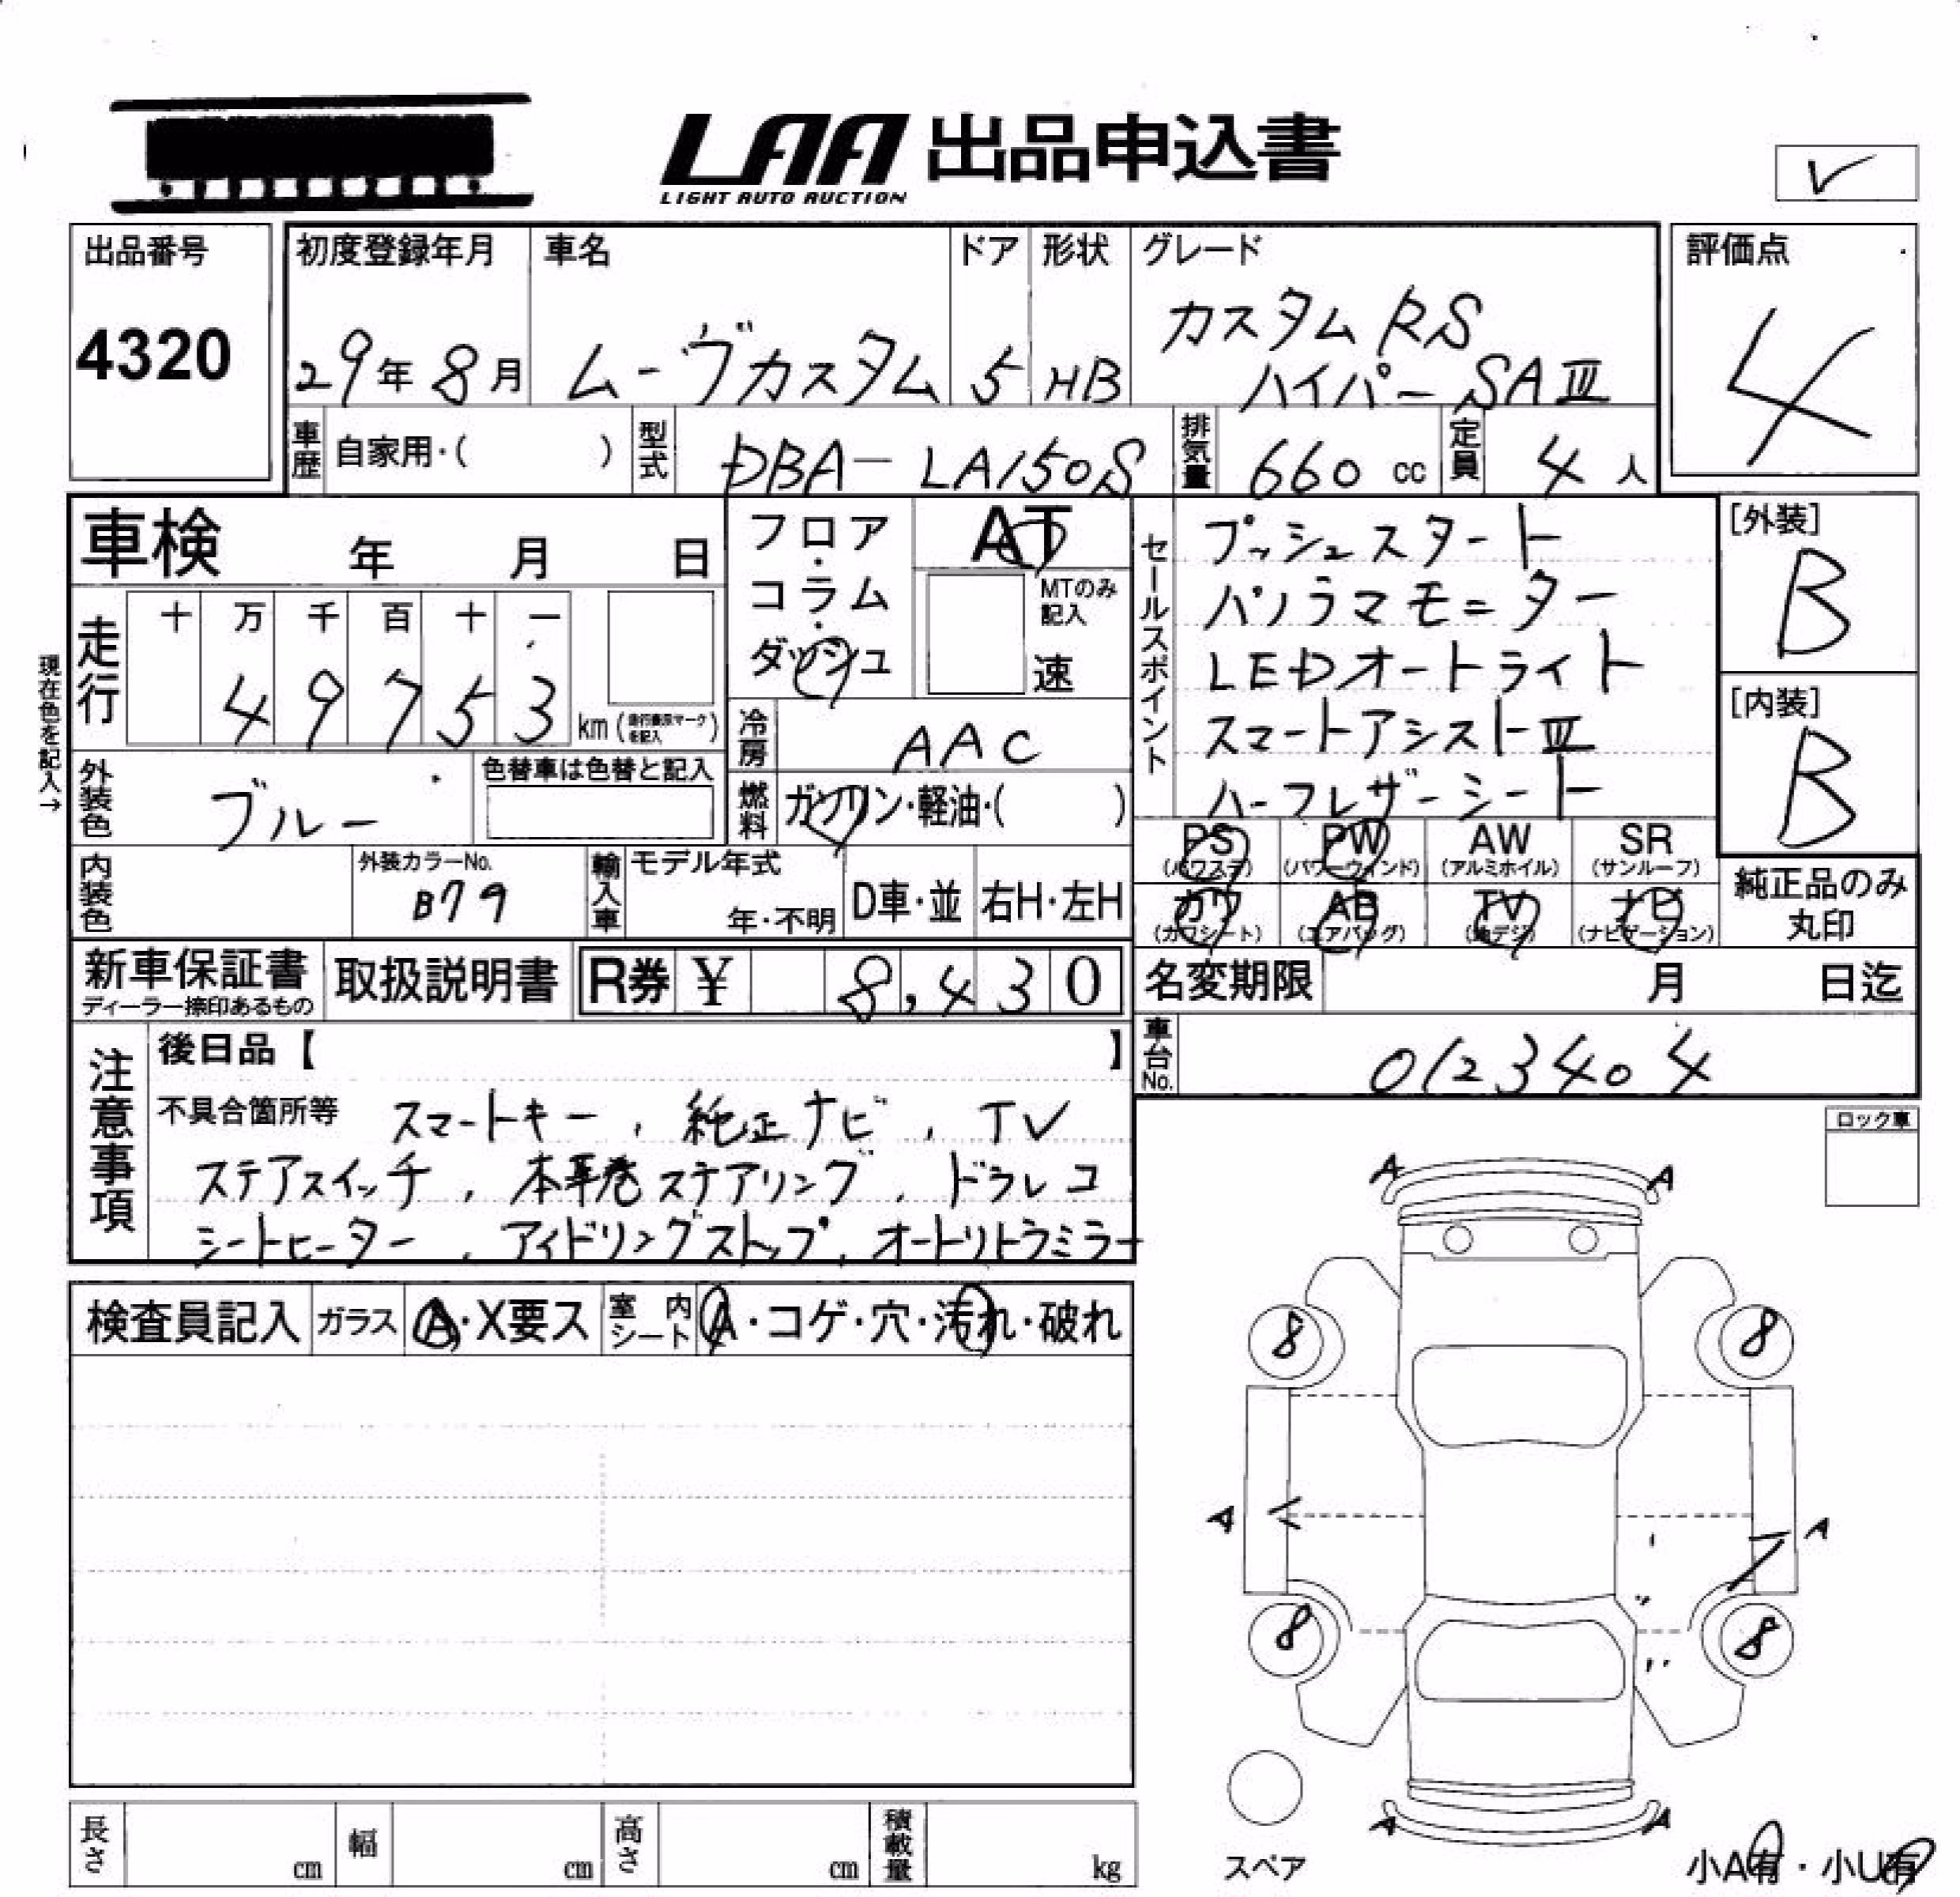 LAA 出品申込書
LIGHT AUTO AUCTION
✓
出品番号
4320
初度登録年月
29年8月
車名
ムーヴカスタム
ドア
5
形状
HB
グレード
カスタムRS
ハイパーSAⅢ
評価点
4
車歴 自家用・( )
型式 DBA-LA150S
排気量 660 cc
定員 4 人
車検 年 月 日
フロア・コラム・ダッシュ
AT
MTのみ記入
速
セールスポイント
プッシュスタート
パノラマモニター
LEDオートライト
スマートアシストⅢ
ハーフレザーシート
[外装]
B
[内装]
B
現在色を記入→
走行
十 万 千 百 十 一
4 9 7 5 3 km (走行表示マークを記入)
冷房 AAC
外装色 ブルー
色替車は色替と記入
燃料 ガソリン・軽油・( )
PS (パワステ)
PW (パワーウィンド)
AW (アルミホイル)
SR (サンルーフ)
カワ (カワシート)
AB (エアバッグ)
TV (地デジ)
ナビ (ナビゲーション)
純正品のみ
丸印
内装色
外装カラーNo.
B79
輸入車
モデル年式
年・不明
D車・並
右H・左H
新車保証書
ディーラー捺印あるもの
取扱説明書
R券 ¥ 8,430
名変期限 月 日迄
車台No. 0123404
注意事項
後日品【 】
不具合箇所等 スマートキー , 純正ナビ , TV
ステアスイッチ , 本革巻ステアリング , ドラレコ
シートヒーター , アイドリングストップ , オートリトラミラー
ロック車
検査員記入
ガラス A・X要ス
室内シート A・コゲ・穴・汚れ・破れ
A A
8 8
A A
8 8
A A
スペア
小A有・小U有
長さ cm
幅 cm
高さ cm
積載量 kg